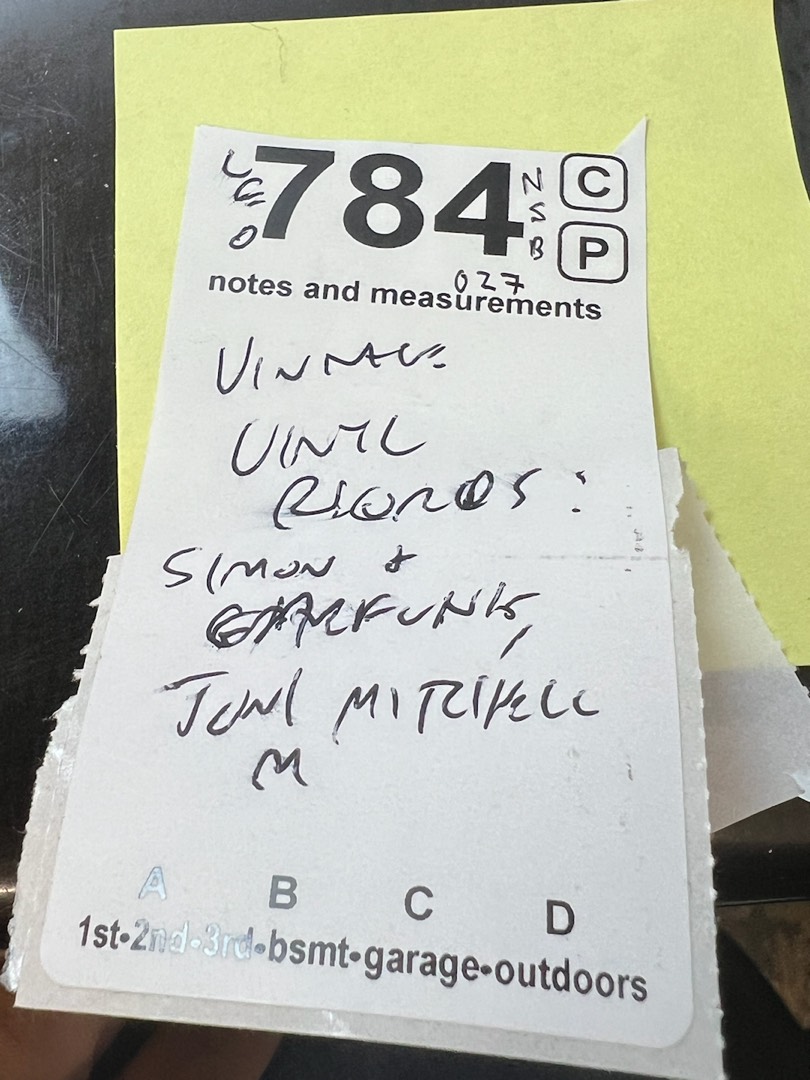 LEO 784 NSB C
P
027
notes and measurements
VINTAGE
VINYL
RECORDS:
SIMON &
GARFUNK,
JONI MITCHELL
M
A B C D
1st•2nd•3rd•bsmt•garage•outdoors